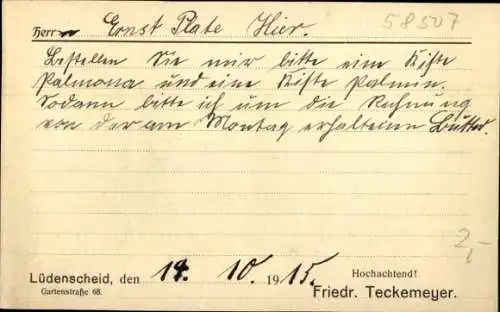 58507
Herrn Ernst Plate Hier.
Bestellen Sie mir bitte eine Kiste
Palmona und eine Kiste Palmin.
Sodann bitte ich um die Rechnung
von der am Montag erhaltenen Butter.
2,-
Lüdenscheid, den 14. 10. 1915. Hochachtend!
Gartenstraße 68. Friedr. Teckemeyer.